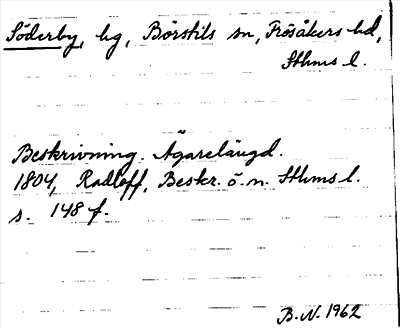 Söderby, hg, Börstils sn, Frösåkers hd,
Sthms l.
Beskrivning. Ägarelängd.
1804, Radloff, Beskr. ö. n. Sthms l.
s. 148 f.
B.N. 1962